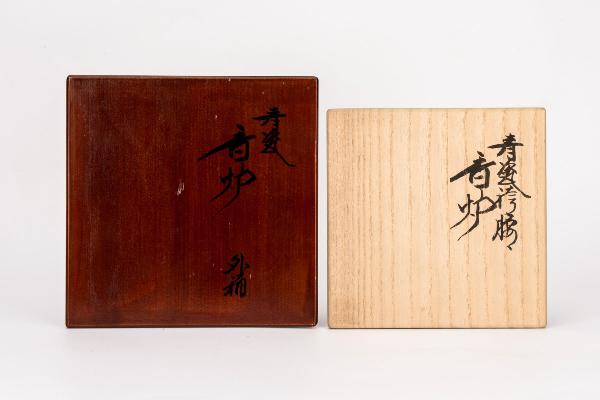 青瓷
香炉
青瓷袴腰
香炉